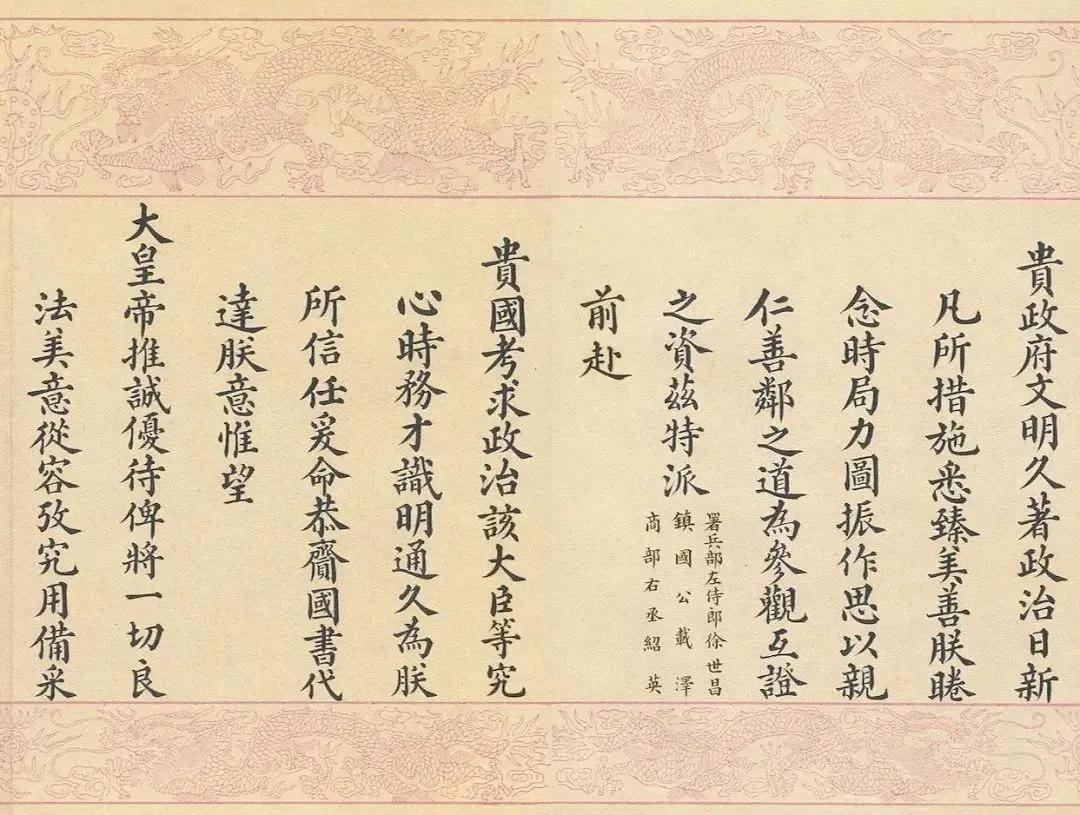 貴政府文明久著政治日新
凡所措施悉臻美善朕睠
念時局力圖振作思以親
仁善鄰之道為參觀互證
之資茲特派
鎮國公載澤
署兵部左侍郎徐世昌
商部右丞紹英
前赴
貴國考求政治該大臣等究
心時務才識明通久為朕
所信任爰命恭齎國書代
達朕意惟望
大皇帝推誠優待俾將一切良
法美意從容攷究用備采